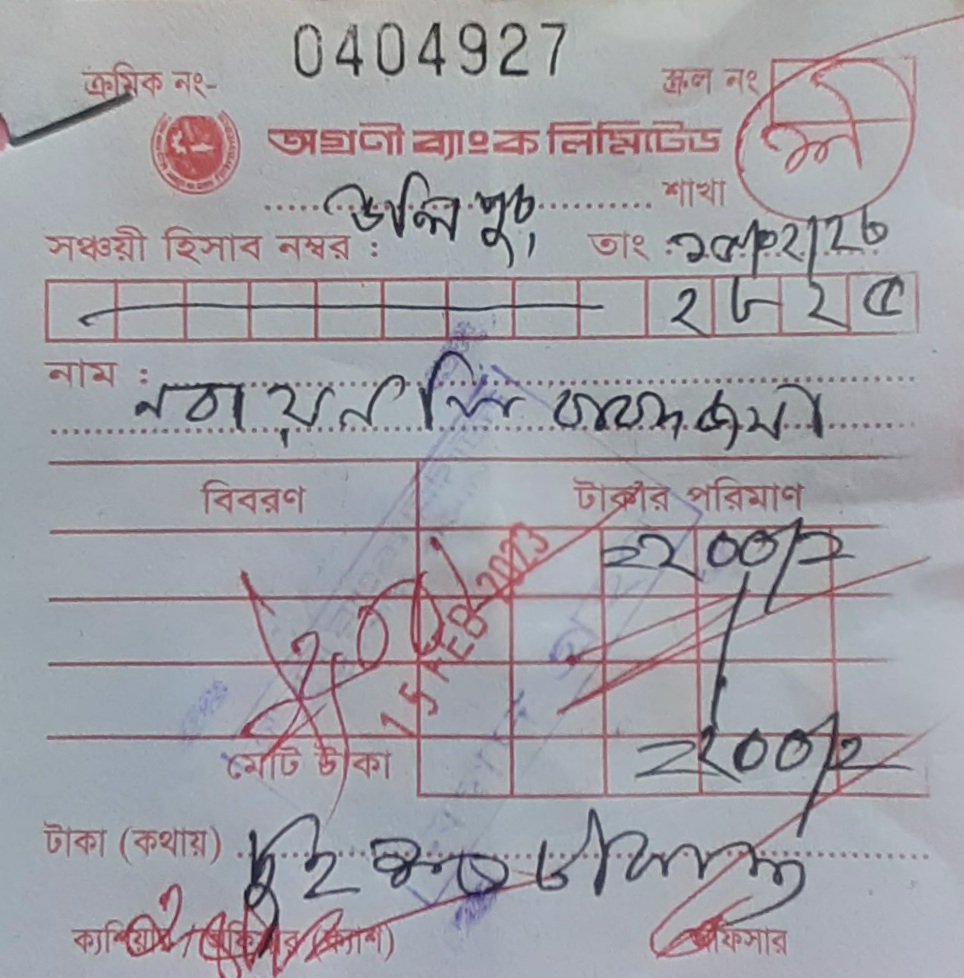 0404927
ক্রমিক নং- স্ক্রল নং
অগ্রণী ব্যাংক লিমিটেড
উলিপুর শাখা
সঞ্চয়ী হিসাব নম্বর : তাং : ১৫/০২/২৩
২৮২৫
নাম :
বিবরণ টাকার পরিমাণ
২০০/=
15 FEB 2023
মোট টাকা ২০০/=
টাকা (কথায়) দুই শত টাকা মাত্র
ক্যাশিয়ার / অফিসার (ক্যাশ) অফিসার